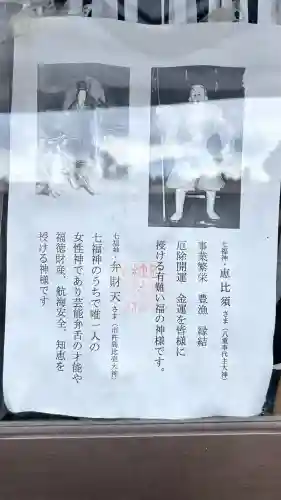 七福神・恵比須さま（八重事代主大神）
事業繁栄 豊漁 縁結
厄除開運 金運を皆様に
授ける有難い福の神様です。
七福神・弁財天さま（市杵嶋比売大神）
七福神のうちで唯一人の
女性神であり芸能弁舌の才能や
福徳財産、航海安全、知恵を
授ける神様です